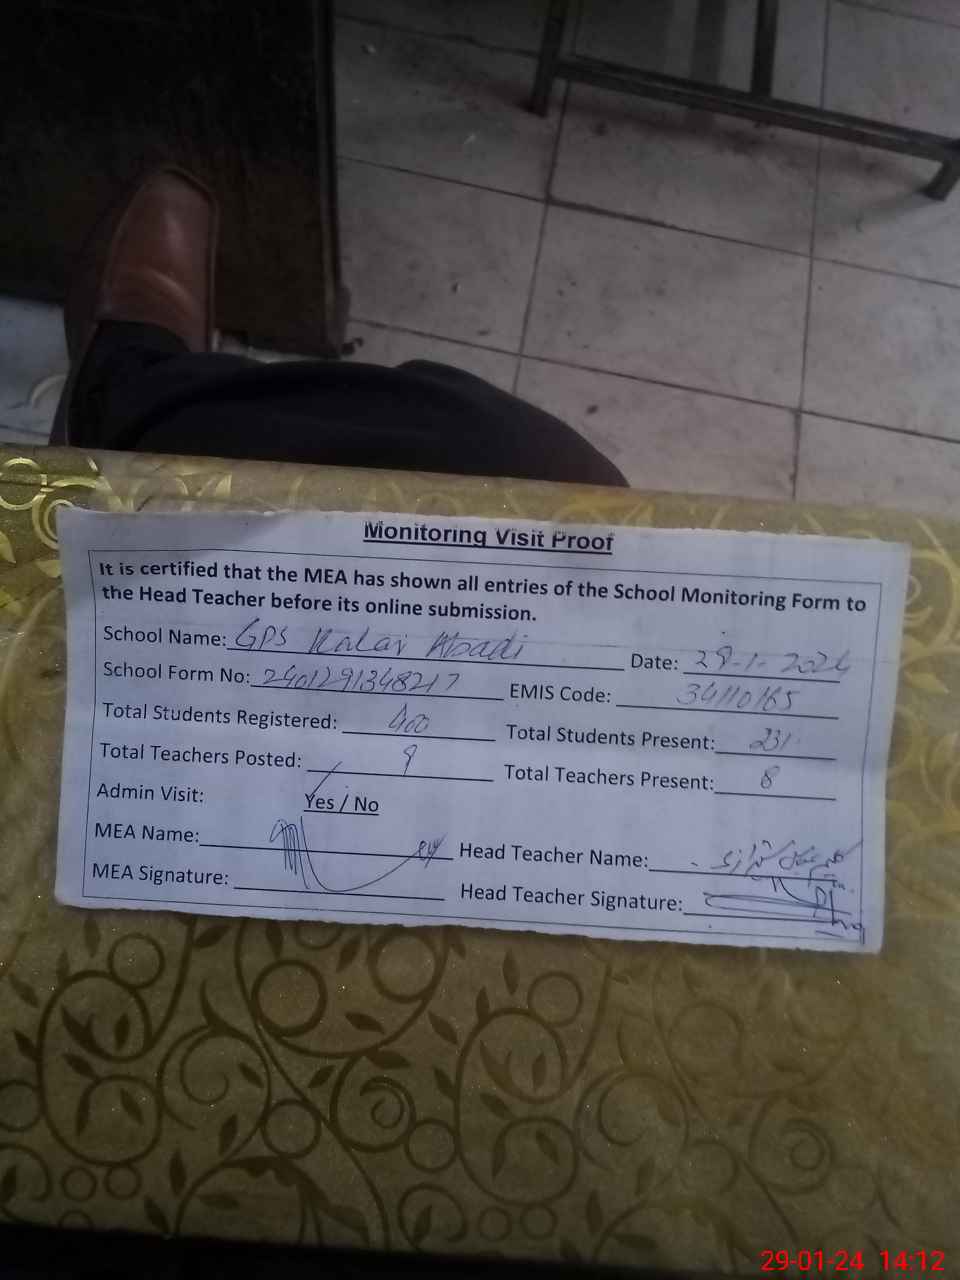 Monitoring Visit Proof
It is certified that the MEA has shown all entries of the School Monitoring Form to
the Head Teacher before its online submission.
School Name: GPS Kalar Abadi Date: 29-1-2024
School Form No: 2401291348217 EMIS Code: 34110165
Total Students Registered: 400 Total Students Present: 231
Total Teachers Posted: 9 Total Teachers Present: 8
Admin Visit: Yes / No
MEA Name: Head Teacher Name:
MEA Signature: Head Teacher Signature:
29-01-24 14:12